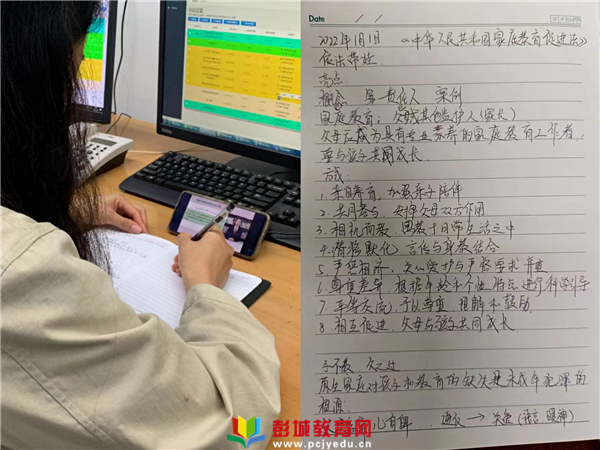 Date / /
2022年1月1日 《中华人民共和国家庭教育促进法》
依法带娃.
亮点
概念 第一责任人 案例
家庭教育: 父母或其他监护人(家长)
父母应成为具有专业素养的家庭教育工作者.
要与孩子共同成长.
方式:
1. 亲自养育,加强亲子陪伴
2. 共同参与,发挥父母双方作用
3. 相机而教,寓教于日常生活之中
4. 潜移默化,言传与身教结合
5. 严慈相济,关心爱护与严格要求并重
6. 尊重差异,根据年龄和个性特点进行科学引导
7. 平等交流,予以尊重、理解和鼓励.
8. 相互促进,父母与孩子共同成长
子不教 父之过
原生家庭对孩子和教育的缺失是未成年犯罪的
根源.
儿有 建议 → 关爱(语言 眼神)
彭城教育网
www.pcjyedu.cn